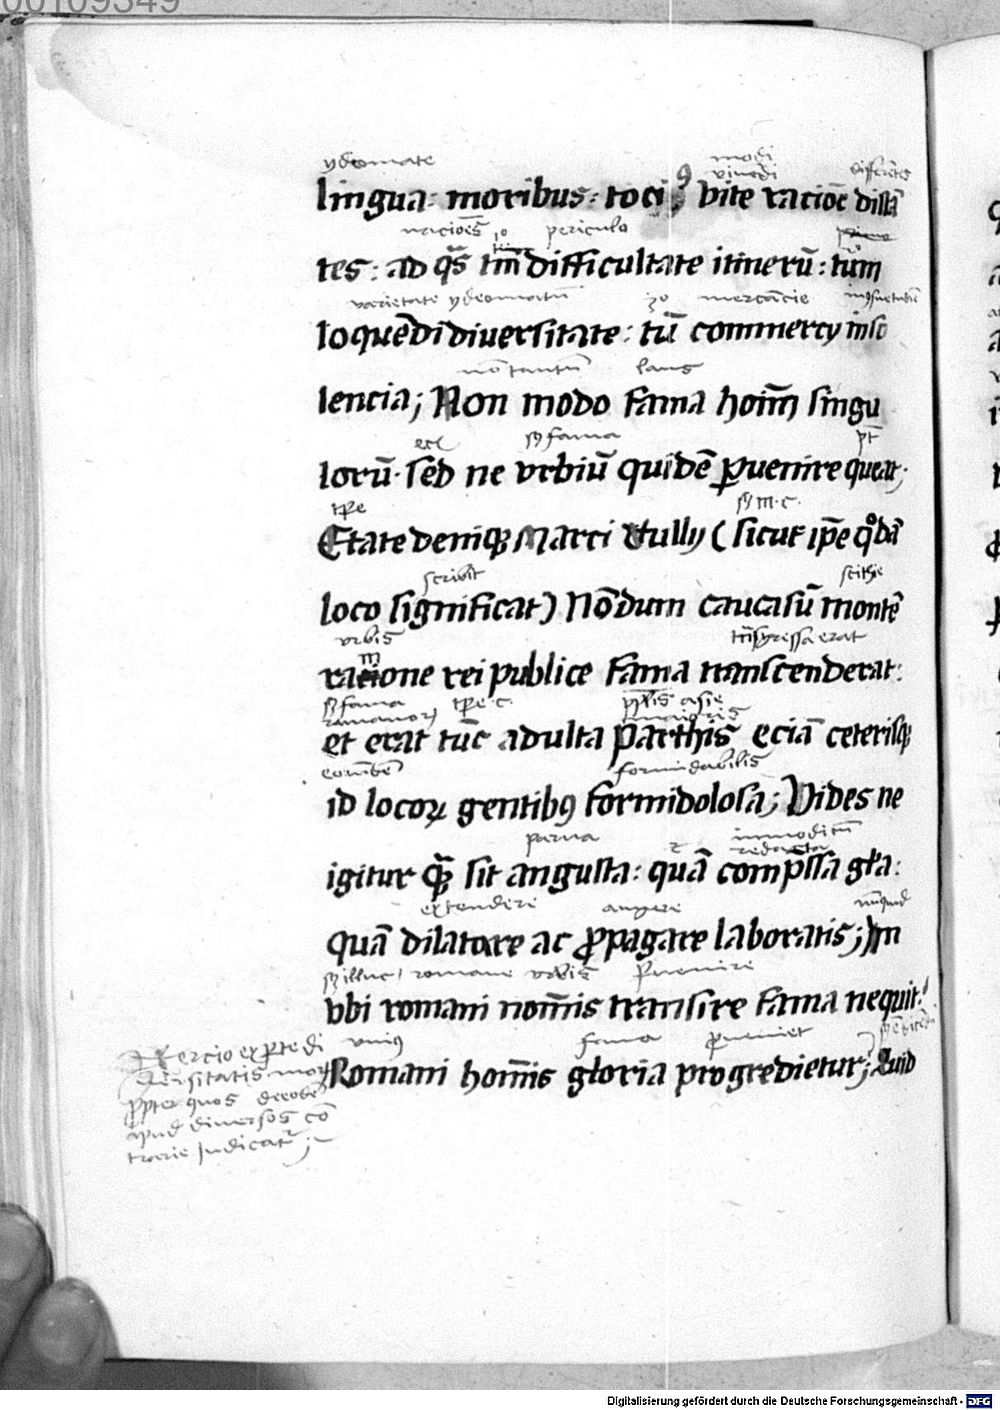 ydeomate modi viuendi differentes
lingua: moribus: toci9 vite racione distã
nacioes io periculo
tes: ad q̃s tm̃ difficultate itinerũ: tum
varietate ydeomatũ io mercancie
loquẽdi diuersitate: tũ commercy inso
nõ tantũ laus
lencia; Non modo fama hoim̃ singu
ecĩ sz fama pt̃
lorũ. sed ne vrbiũ quidẽ ꝑuenire queat;
tp̃e sz m. c.
Etate deniqꝫ Marci Tully (sicut ip̃e qͦdã
scribit scithie
loco significat) Nõdum caucasũ montẽ
vrbis tñsgressa erat
romane rei publice fama transcenderat:
sz fama romanoꝝ tp̃e c. pp̃lis asie maioris
et erat tũc adulta Parthis eciã ceterisqꝫ
formidabilis
id locoꝝ gentibꝯ formidolosa; Vides ne
parua immoditũ redacta
igitur q̃ꝫ sit angusta: quã comp̃ssa gl̃a:
extendere augere nũquid
Quã dilatare ac ꝓpagare laboratis; An
sz illuc romane vrbis ꝑuenire
vbi romani nom̃is transire fama nequit:
vniꝯ fama ꝑueniet
Romani hom̃is gloria progredietur; Quid
Tercio ex parte di
uersitatis moꝝ
ꝓpter quos
apud diuersos cõ
trarie judicatʳ;
Digitalisierung gefördert durch die Deutsche Forschungsgemeinschaft - DFG